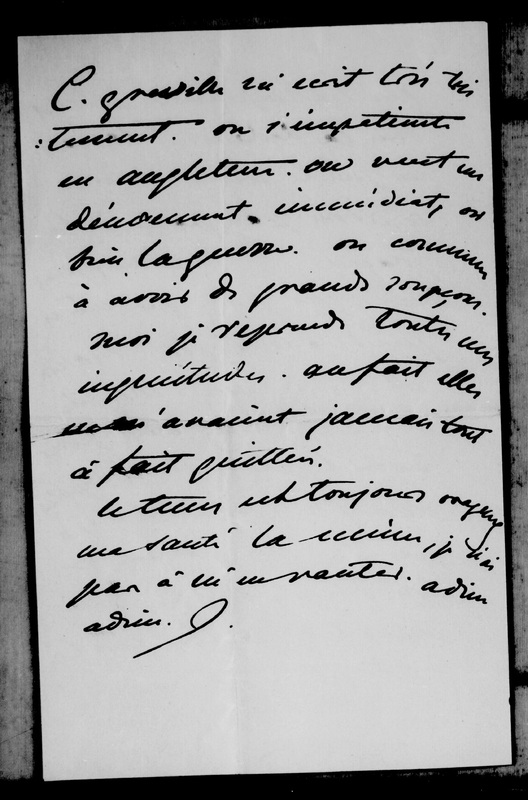 C. greville m'écrit très tris
:tement. on s'impatiente
en angleterre. on veut un
dénouement immédiat, ou
bien la guerre. on commence
à avoir de grands soupçons.
moi je reprends toutes mes
inquiétudes. au fait elles
m'avaient jamais tout
à fait quittée.
le tems est toujours orageux
ma santé la même, je n'ai
pas à m'en vanter. adieu
adieu.